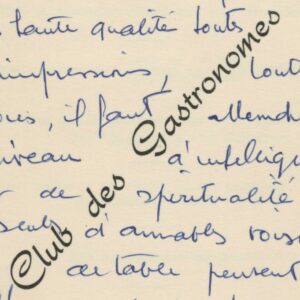 haute qualité toutes
impressions, tout
il faut attendre
niveau d'intelligen
de spiritualité
seuls d'aimables voisi
de table peuvent
Club des Gastronomes